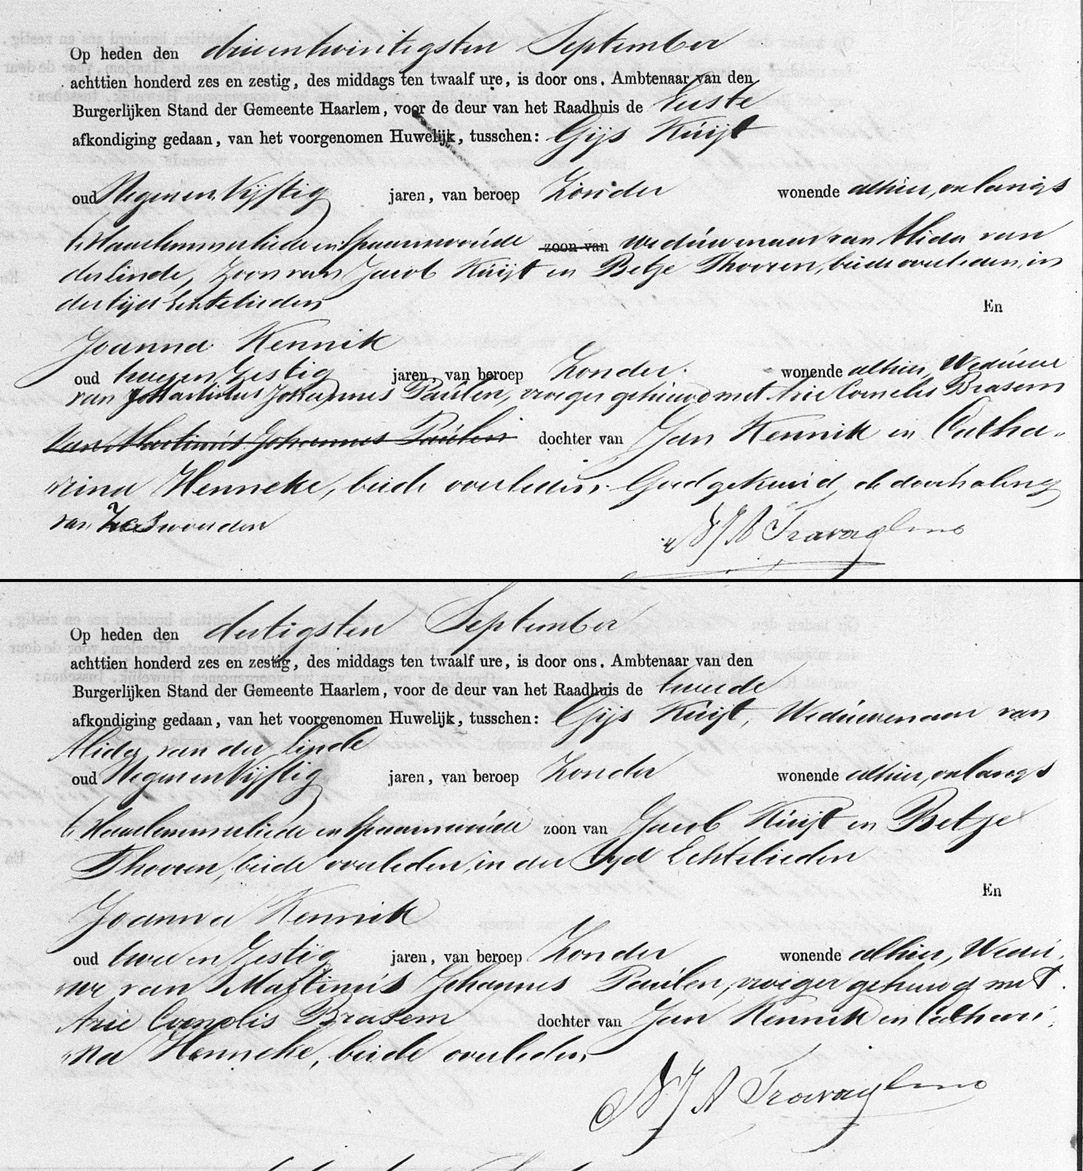 Op heden den drieentwintigsten September
achttien honderd zes en zestig, des middags ten twaalf ure, is door ons, Ambtenaar van den
Burgerlijken Stand der Gemeente Haarlem, voor de deur van het Raadhuis de Eerste
afkondiging gedaan, van het voorgenomen Huwelijk, tusschen: Gijs Kuijt
oud Negenenvijftig jaren, van beroep Zonder wonende alhier, onlangs
te Haarlemmerliede en Spaarnwoude zoon van weduwenaar van Alida van
der Linde, Zoon van Jacob Kuijt en Betje Thooren, beide overleden, in
der tijd Echtelieden
En
Joanna Kennik
oud tweeenzestig jaren, van beroep Zonder wonende alhier, Weduwe
van Martinus Johannes Paulen, vroeger gehuwd met Arie Cornelis Brasem
Martinus Johannes Paulen dochter van Jan Kennik en Catha-
rina Henneke, beide overleden. Goedgekeurd de doorhaling
van zes woorden
N J A Travaglino
Op heden den dertigsten September
achttien honderd zes en zestig, des middags ten twaalf ure, is door ons, Ambtenaar van den
Burgerlijken Stand der Gemeente Haarlem, voor de deur van het Raadhuis de tweede
afkondiging gedaan, van het voorgenomen Huwelijk, tusschen: Gijs Kuijt, Weduwenaar van
Alida van der Linde
oud Negenenvijftig jaren, van beroep Zonder wonende alhier, onlangs
te Haarlemmerliede en Spaarnwoude zoon van Jacob Kuijt en Betje
Thooren, beide overleden, in der Tijd Echtelieden
En
Joanna Kennik
oud tweeenzestig jaren, van beroep Zonder wonende alhier, Wedu-
we van Martinus Johannes Paulen, vroeger gehuwd met
Arie Cornelis Brasem dochter van Jan Kennik en Cathari-
na Henneke, beide overleden
N J A Travaglino